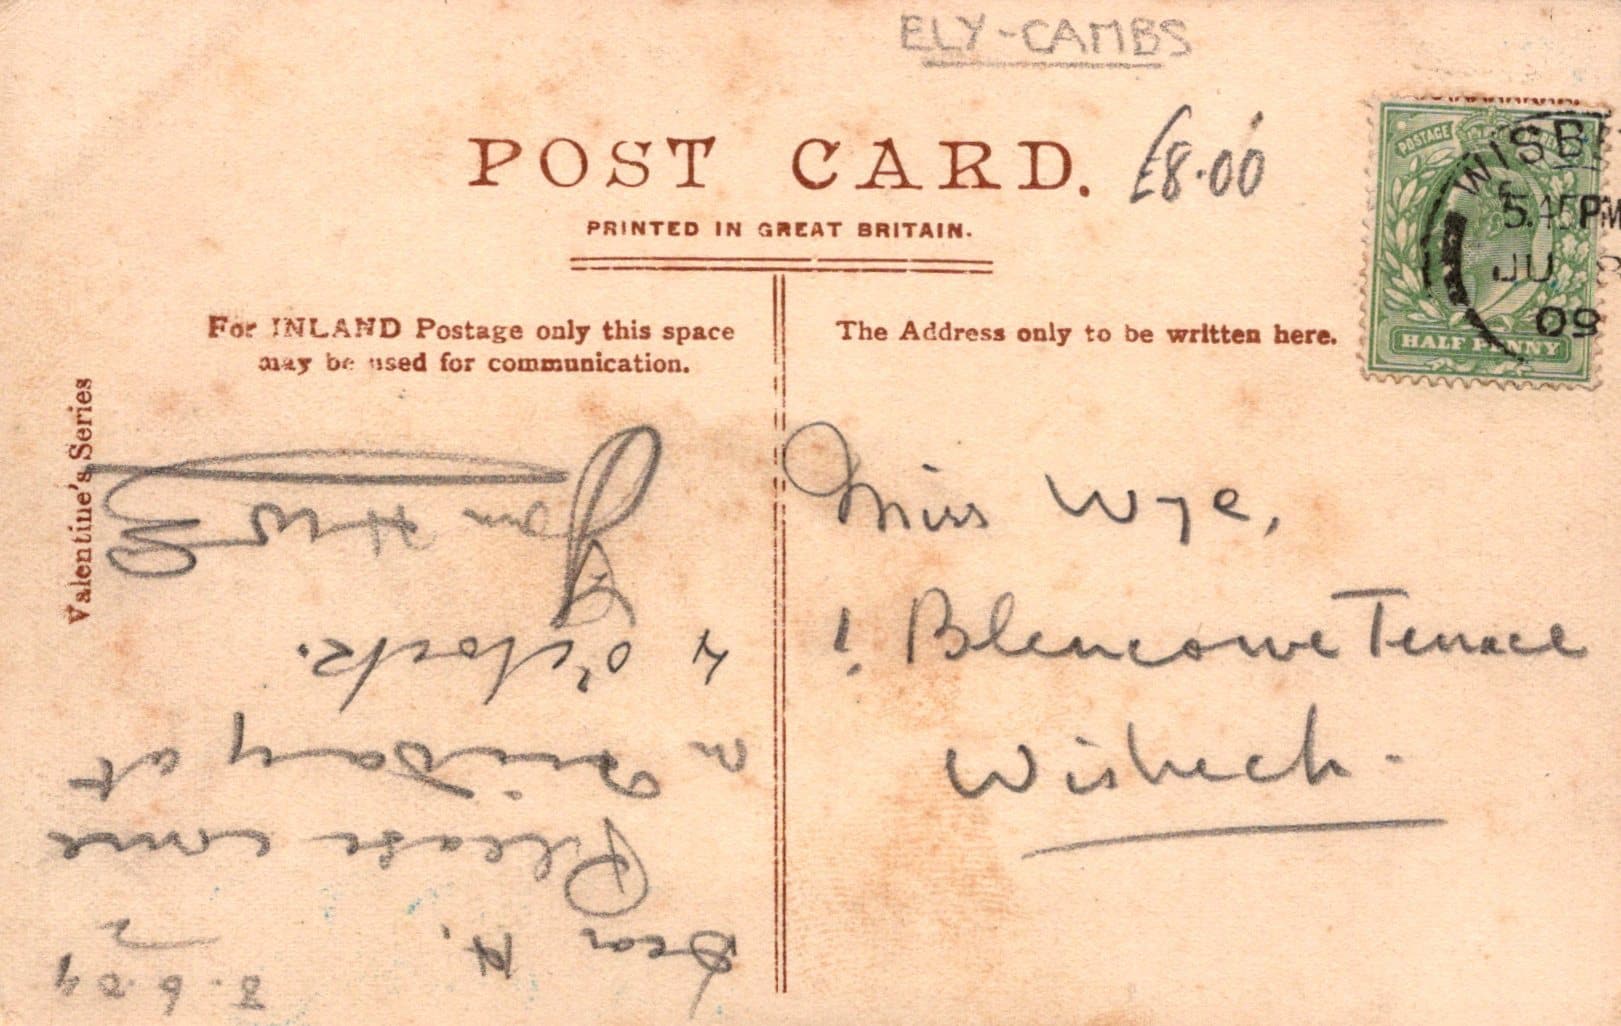 ELY-CAMBS
POST CARD.
£8.00
PRINTED IN GREAT BRITAIN.
POSTAGE
WISB
5.45PM
JU 8
09
HALF PENNY
For INLAND Postage only this space
may be used for communication.
The Address only to be written here.
Valentine's Series
8.6.09
Dear H.
Please come
on Friday at
4 o'clock.
Miss Wye,
1 Blencowe Terrace
Wisbech.